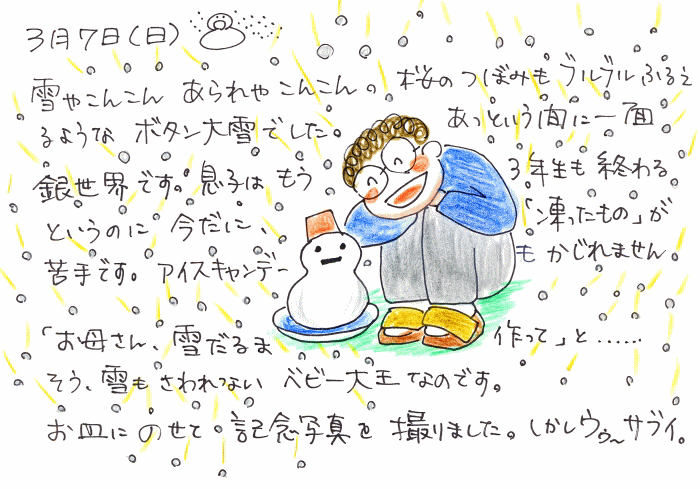 3月7日(日)
雪やこんこん あられやこんこん。桜のつぼみもブルブルふるえ
るような ボタン大雪でした。あっという間に一面
銀世界です。息子は もう 3年生も終わる
というのに 今だに、「凍ったもの」が
苦手です。アイスキャンデーもかじれません。
「お母さん、雪だるま 作って」と……
そう、雪もさわれない ベビー大王なのです。
お皿にのせて 記念写真を 撮りました。しかしウゥ〜サブイ。